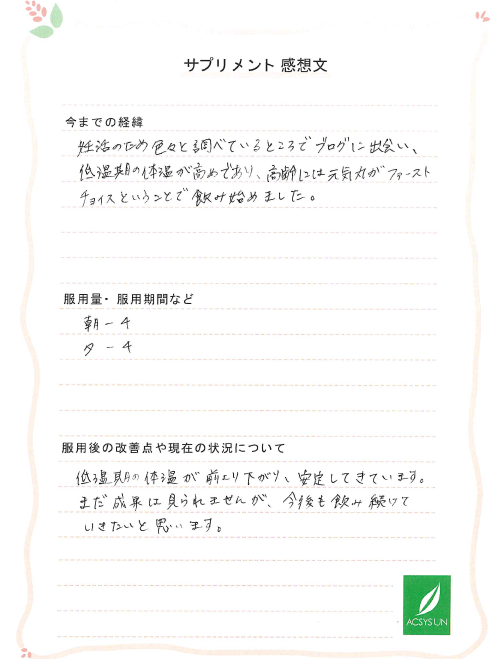 サプリメント 感想文
今までの経緯
妊活のため色々と調べているところでブログに出会い、
低温期の体温が高めであり、高齢には元気丸がファースト
チョイスということで飲み始めました。
服用量・服用期間など
朝ー4
夕ー4
服用後の改善点や現在の状況について
低温期の体温が前より下がり、安定してきています。
まだ成果は見られませんが、今後も飲み続けて
いきたいと思います。
ACSYSUN